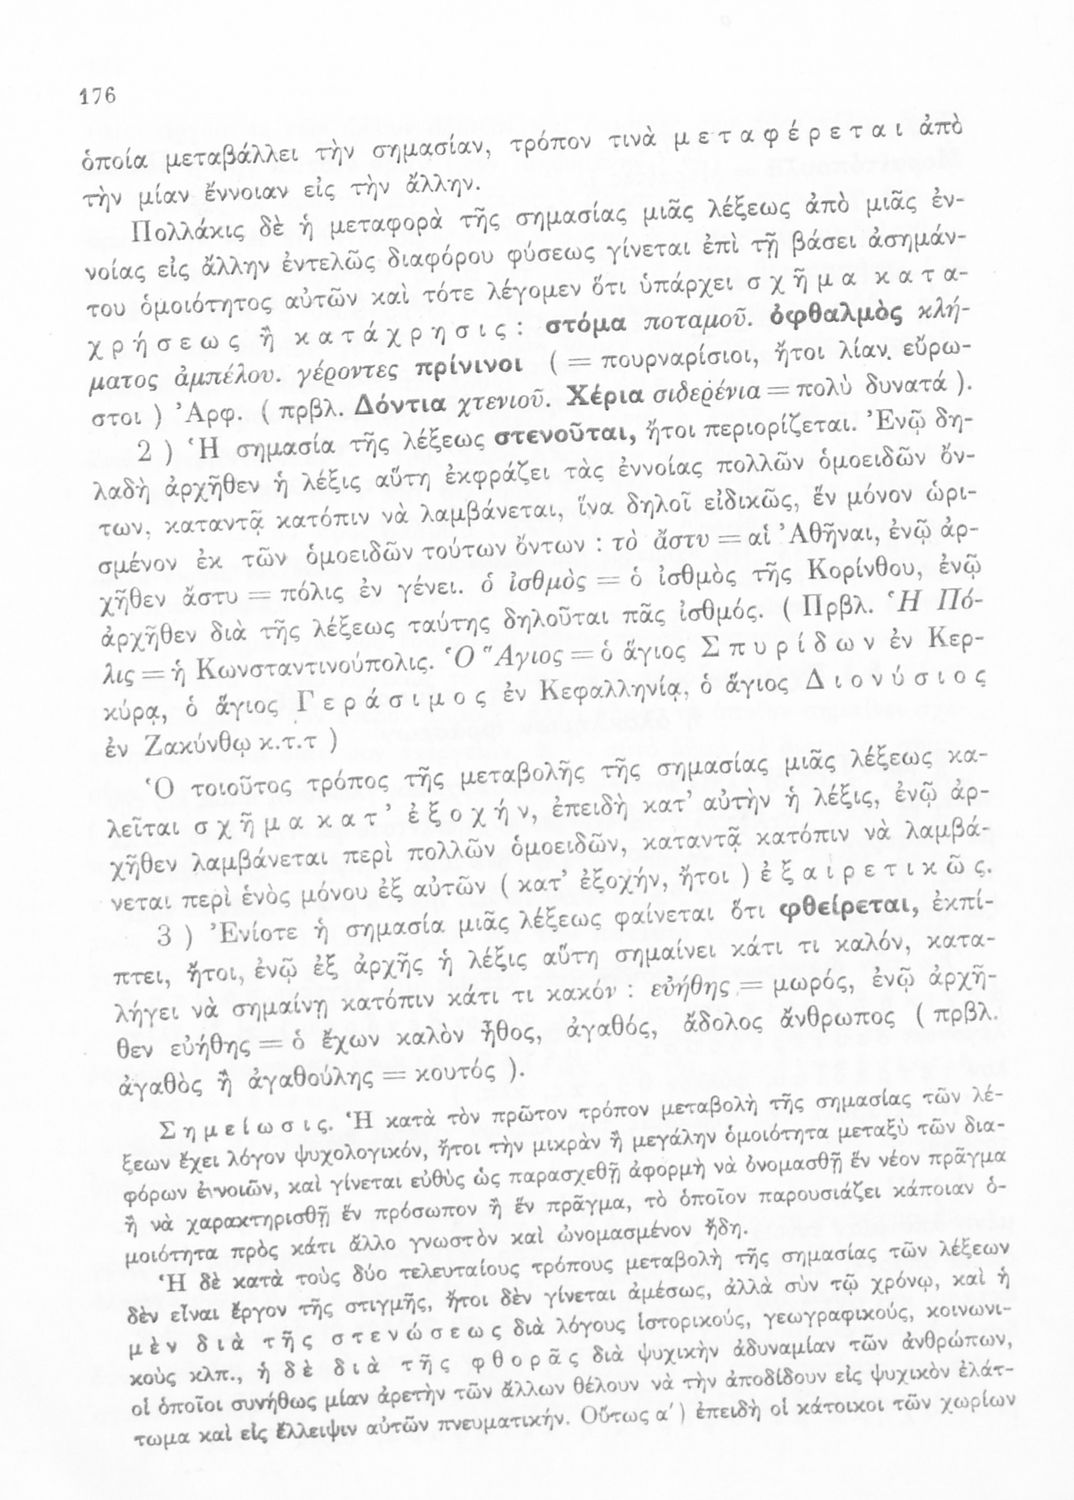 176
ὁποία μεταβάλλει τὴν σημασίαν, τρόπον τινὰ μεταφέρεται ἀπὸ
τὴν μίαν ἔννοιαν εἰς τὴν ἄλλην.
Πολλάκις δὲ ἡ μεταφορὰ τῆς σημασίας μιᾶς λέξεως ἀπὸ μιᾶς ἐν-
νοίας εἰς ἄλλην ἐντελῶς διαφόρου φύσεως γίνεται ἐπὶ τῇ βάσει ἀσημάν-
του ὁμοιότητος αὐτῶν καὶ τότε λέγομεν ὅτι ὑπάρχει σχῆμα κατα-
χρήσεως ἢ κατάχρησις: στόμα ποταμοῦ. ὀφθαλμὸς κλή-
ματος ἀμπέλου. γέροντες πρίνινοι ( = πουρναρίσιοι, ἤτοι λίαν εὔρω-
στοι ) Ἀρφ. ( πρβλ. Δόντια χτενιοῦ. Χέρια σιδερένια = πολὺ δυνατά ).
2 ) Ἡ σημασία τῆς λέξεως στενοῦται, ἤτοι περιορίζεται. Ἐνῷ δη-
λαδὴ ἀρχῆθεν ἡ λέξις αὕτη ἐκφράζει τὰς ἐννοίας πολλῶν ὁμοειδῶν ὄν-
των, καταντᾷ κατόπιν νὰ λαμβάνεται, ἵνα δηλοῖ εἰδικῶς, ἕν μόνον ὡρι-
σμένον ἐκ τῶν ὁμοειδῶν τούτων ὄντων : τὸ ἄστυ = αἱ Ἀθῆναι, ἐνῷ ἀρ-
χῆθεν ἄστυ = πόλις ἐν γένει. ὁ ἰσθμὸς = ὁ ἰσθμὸς τῆς Κορίνθου, ἐνῷ
ἀρχῆθεν διὰ τῆς λέξεως ταύτης δηλοῦται πᾶς ἰσθμός. ( Πρβλ. Ἡ Πό-
λις = ἡ Κωνσταντινούπολις. Ὁ Ἅγιος = ὁ ἅγιος Σπυρίδων ἐν Κερ-
κύρᾳ, ὁ ἅγιος Γεράσιμος ἐν Κεφαλληνίᾳ, ὁ ἅγιος Διονύσιος
ἐν Ζακύνθῳ κ.τ.τ )
Ὁ τοιοῦτος τρόπος τῆς μεταβολῆς τῆς σημασίας μιᾶς λέξεως κα-
λεῖται σχῆμα κατ' ἐξοχήν, ἐπειδὴ κατ' αὐτὴν ἡ λέξις, ἐνῷ ἀρ-
χῆθεν λαμβάνεται περὶ πολλῶν ὁμοειδῶν, καταντᾷ κατόπιν νὰ λαμβά-
νεται περὶ ἑνὸς μόνου ἐξ αὐτῶν ( κατ' ἐξοχήν, ἤτοι ) ἐξαιρετικῶς.
3 ) Ἐνίοτε ἡ σημασία μιᾶς λέξεως φαίνεται ὅτι φθείρεται, ἐκπί-
πτει, ἤτοι, ἐνῷ ἐξ ἀρχῆς ἡ λέξις αὕτη σημαίνει κάτι τι καλόν, κατα-
λήγει νὰ σημαίνῃ κατόπιν κάτι τι κακόν : εὐήθης = μωρός, ἐνῷ ἀρχῆ-
θεν εὐήθης = ὁ ἔχων καλὸν ἦθος, ἀγαθός, ἄδολος ἄνθρωπος ( πρβλ.
ἀγαθὸς ἢ ἀγαθούλης = κουτός ).
Σημείωσις. Ἡ κατὰ τὸν πρῶτον τρόπον μεταβολὴ τῆς σημασίας τῶν λέ-
ξεων ἔχει λόγον ψυχολογικόν, ἤτοι τὴν μικρὰν ἢ μεγάλην ὁμοιότητα μεταξὺ τῶν δια-
φόρων ἐννοιῶν, καὶ γίνεται εὐθὺς ὡς παρασχεθῇ ἀφορμὴ νὰ ὀνομασθῇ ἕν νέον πρᾶγμα
ἢ νὰ χαρακτηρισθῇ ἕν πρόσωπον ἢ ἕν πρᾶγμα, τὸ ὁποῖον παρουσιάζει κάποιαν ὁ-
μοιότητα πρὸς κάτι ἄλλο γνωστὸν καὶ ὠνομασμένον ἤδη.
Ἡ δὲ κατὰ τοὺς δύο τελευταίους τρόπους μεταβολὴ τῆς σημασίας τῶν λέξεων
δὲν εἶναι ἔργον τῆς στιγμῆς, ἤτοι δὲν γίνεται ἀμέσως, ἀλλὰ σὺν τῷ χρόνῳ, καὶ ἡ
μὲν διὰ τῆς στενώσεως διὰ λόγους ἱστορικούς, γεωγραφικούς, κοινωνι-
κοὺς κλπ., ἡ δὲ διὰ τῆς φθορᾶς διὰ ψυχικὴν ἀδυναμίαν τῶν ἀνθρώπων,
οἱ ὁποῖοι συνήθως μίαν ἀρετὴν τῶν ἄλλων θέλουν νὰ τὴν ἀποδίδουν εἰς ψυχικὸν ἐλάτ-
τωμα καὶ εἰς ἔλλειψιν αὐτῶν πνευματικήν. Οὕτως α') ἐπειδὴ οἱ κάτοικοι τῶν χωρίων